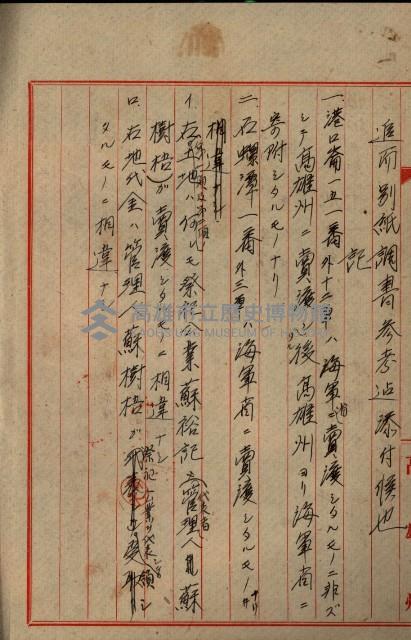 追而別紙調書参考迄添付候也
記
一、港口崙一五一番外十二筆ハ海軍省ニ賣渡シタルモノニ非ズ
シテ高雄州ニ賣渡シタル後高雄州ヨリ海軍省ニ
寄附シタルモノナリ
二、石螺潭一番外三筆ハ海軍省ニ賣渡シタルモノナリ
相違ナシ
イ、右土地ハ何レモ祭祀公業蘇裕記(代表者)管理人蘇
樹梧)ガ賣渡シタルモノニ相違ナシ
ロ、右地代金ハ管理人蘇樹梧ガ祭祀公業ノ代表シテ領シ
タルモノニ相違ナシ
高雄市立歷史博物館
KAOHSIUNG MUSEUM OF HISTORY
高雄州